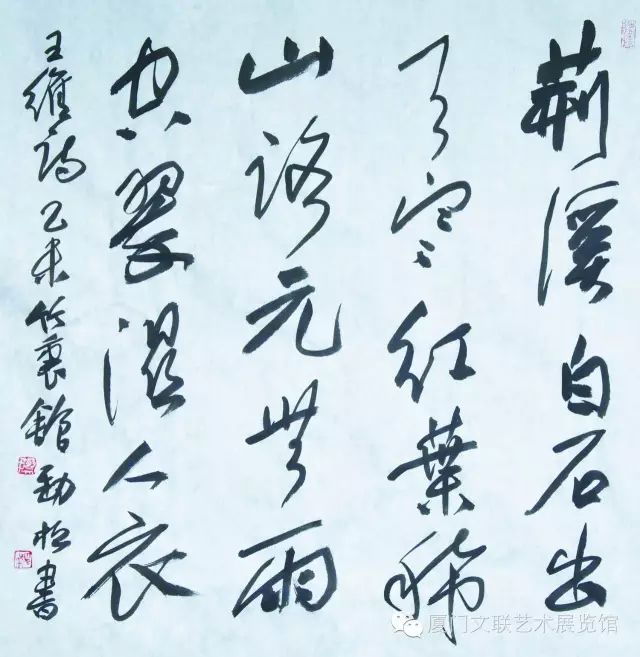 荆溪白石出
天寒红葉稀
山路元無雨
空翠濕人衣
王維詩 乙未 竹裏館 勁松書
厦门文联艺术展览馆